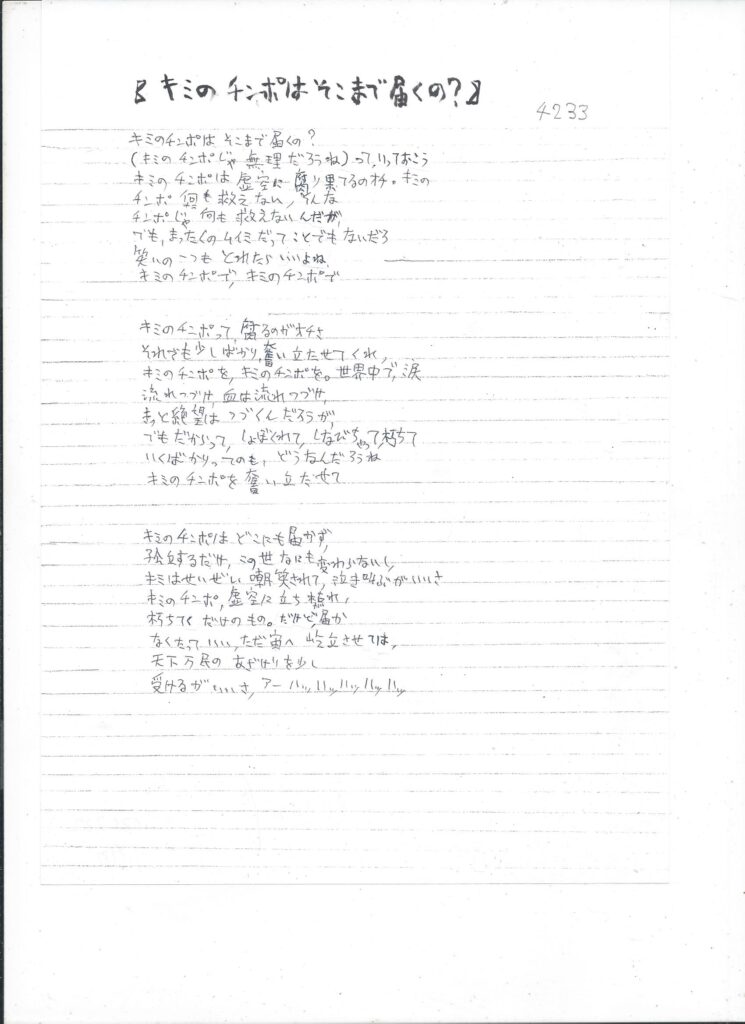 『キミのチンポはそこまで届くの?』
4233
キミのチンポは そこまで届くの?
(キミの チンポじゃ 無理だろうね)って,いっておこう
キミの チンポは 虚空に 腐り果てるのオチ。キミの
チンポ 何も救えない,そんな
チンポじゃ 何も 救えないんだが,
でも,まったくの ムイミだってことでもないだろ
笑いの一つも とれたら いいよね
キミのチンポで,キミのチンポで
キミのチンポって,腐るのがオチさ
それさも少しばかり,奮い立たせてくれ,
キミのチンポを,キミのチンポを。世界中で,涙
流れつづけ,血は流れつづけ,
きっと絶望は つづくんだろうが,
でもだからって,しょぼくれて,しなびちゃって,朽ちて
いくばかりってのも,どうなんだろうね
キミのチンポを 奮い立たせて
キミのチンポは どこにも届かず,
孤立するだけ,この世なにも変わらないし,
キミはせいぜい 嘲笑されて,泣き叫ぶがいいさ
キミのチンポ,虚空に立ち枯れ,
朽ちてくだけのもの。だけど,届か
なくたっていい,ただ宙へ 屹立させては,
天下万民の あざけりを少し
受けるがいいさ,アーハッハッハッハッハッ